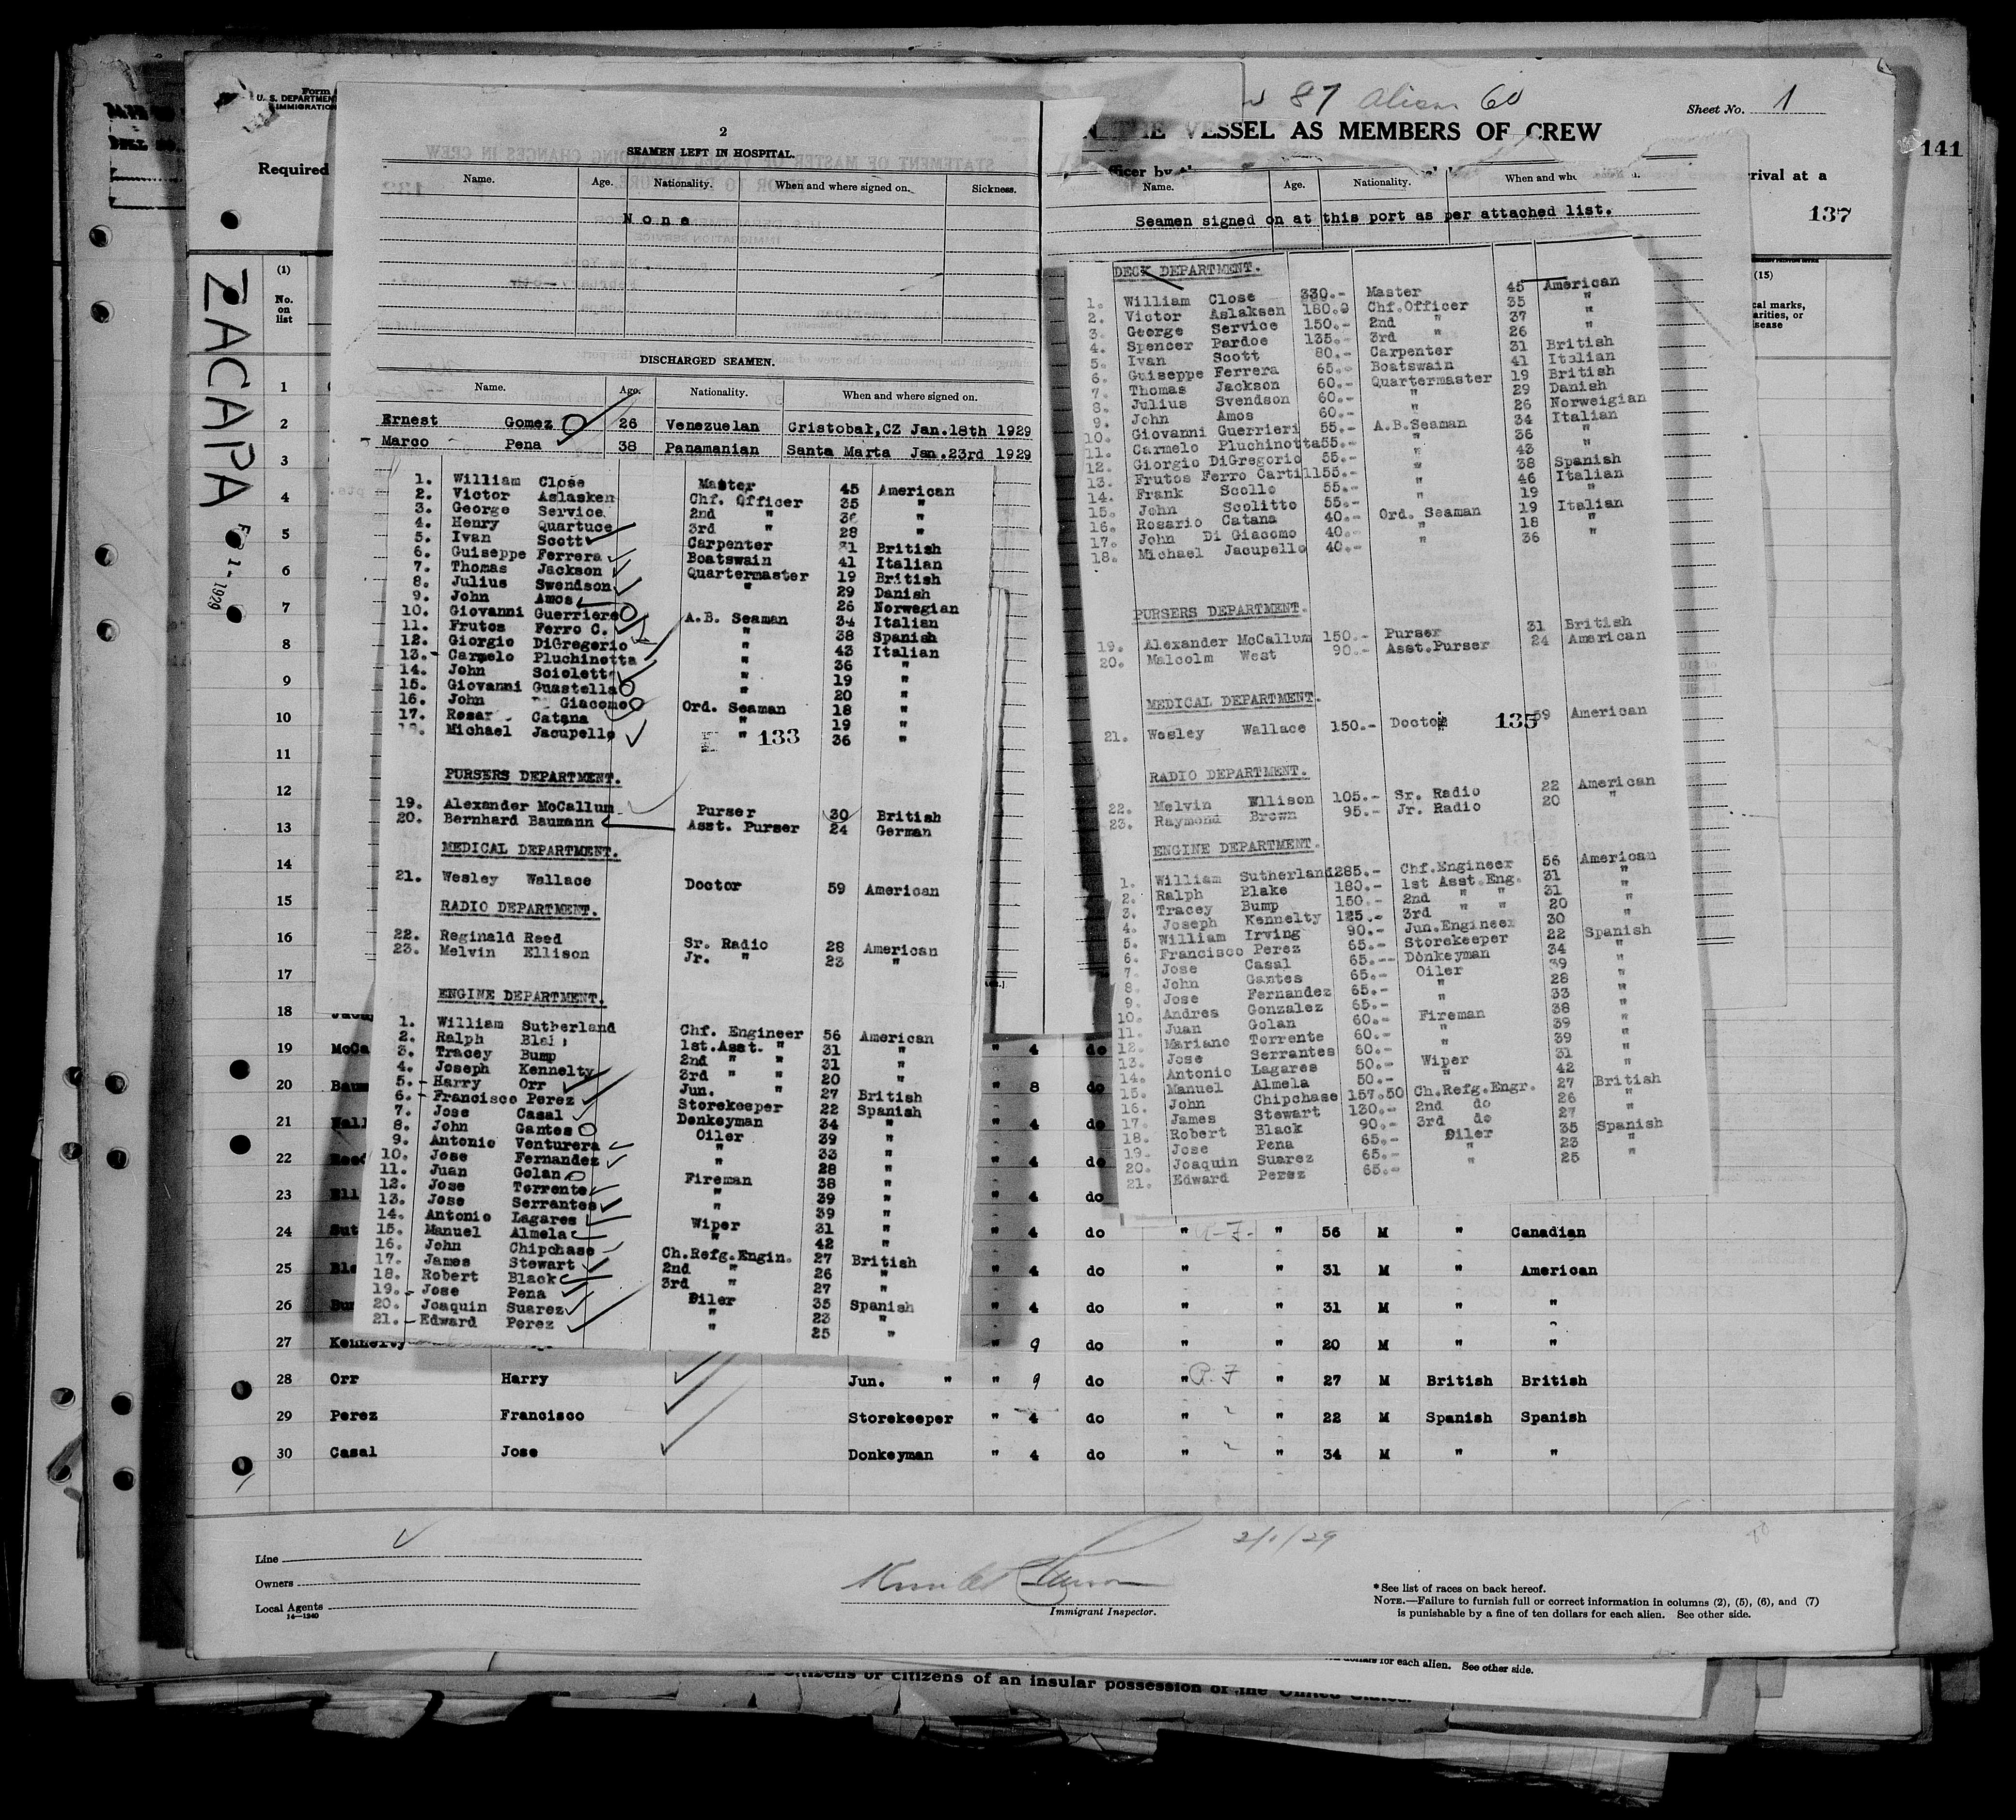 87 Aliens 60
Sheet No. 1
VESSEL AS MEMBERS OF CREW
141
137
Form
U. S. DEPARTMENT
IMMIGRATION
Required
rival at a
ZACAPA
1929
(1)
No.
on
list
(15)
cal marks,
arities, or
isease
2
SEAMEN LEFT IN HOSPITAL.
Name. Age. Nationality. When and where signed on. Sickness.
None
DISCHARGED SEAMEN.
Name. Age. Nationality. When and where signed on.
Ernest Gomez 26 Venezuelan Cristobal,CZ Jan.18th 1929
Marco Pena 38 Panamanian Santa Marta Jan.23rd 1929
1. William Close Master 45 American
2. Victor Aslasken Chf. Officer 35 "
3. George Service 2nd " 36 "
4. Henry Quartuce 3rd " 28 "
5. Ivan Scott Carpenter 31 British
6. Guiseppe Ferrera Boatswain 41 Italian
7. Thomas Jackson Quartermaster 19 British
8. Julius Swendson " 29 Danish
9. John Amos 26 Norwegian
10. Giovanni Guerriero A.B. Seaman 34 Italian
11. Frutos Ferro C. " 38 Spanish
12. Giorgio DiGregorio " 43 Italian
13. Carmelo Pluchinotta " 36 "
14. John Sciolett " 19 "
15. Giovanni Guastella " 20 "
16. John Giacomo Ord. Seaman 18 "
17. Rosar Catana " 19 "
Michael Jacupello " 133 36 "
PURSERS DEPARTMENT.
19. Alexander McCallum Purser 30 British
20. Bernhard Baumann Asst. Purser 24 German
MEDICAL DEPARTMENT.
21. Wesley Wallace Doctor 59 American
RADIO DEPARTMENT.
22. Reginald Reed Sr. Radio 28 American
23. Melvin Ellison Jr. " 23 "
ENGINE DEPARTMENT.
1. William Sutherland Chf. Engineer 56 American
2. Ralph 1st.Asst. " 31 "
3. Tracey Bump 2nd " " 31 "
4. Joseph Kennelty 3rd " " 20 "
5. Harry Orr Jun. " 27 British
6. Francisco Perez Storekeeper 22 Spanish
7. Jose Casal Donkeyman 34 "
8. John Gantes Oiler 39 "
9. Antonio Venturera " 33 "
10. Jose Fernandez " 28 "
11. Juan Golan Fireman 38 "
12. Jose Torrente " 39 "
13. Jose Serrantes " 39 "
14. Antonio Lagares Wiper 31 "
15. Manuel Almela " 42 "
16. John Chipchase Ch.Refg.Engin. 27 British
17. James Stewart 2nd " 26 "
18. Robert Black 3rd " 27 "
19. Jose Pena Oiler 35 Spanish
20. Joaquin Suarez " 23 "
21. Edward Perez " 25 "
Name. Age. Nationality.
Seamen signed on at this port as per attached list.
DECK DEPARTMENT.
1. William Close 330.- Master 45 American
2. Victor Aslaksen 180.0 Chf.Officer 35 "
3. George Service 150.- 2nd " 37 "
4. Spencer Pardoe 135.- 3rd " 26 "
5. Ivan Scott 80.- Carpenter 31 British
6. Guiseppe Ferrera 65.- Boatswain 41 Italian
7. Thomas Jackson 60.- Quartermaster 19 British
8. Julius Svendson 60.- " 29 Danish
9. John Amos 60.- " 26 Norweigian
10. Giovanni Guerrieri 55.- A.B.Seaman 34 Italian
11. Carmelo Pluchinotta55.- " 36 "
12. Giorgio DiGregorio 55.- " 43 "
13. Frutos Ferro Cartill55.- " 38 Spanish
14. Frank Scollo 55.- " 46 Italian
15. John Scolitto 55.- " 19 "
16. Rosario Catana 40.- Ord. Seaman 19 Italian
17. John Di Giacomo 40.- " 18 "
18. Michael Jacupello 40.- " 36 "
PURSERS DEPARTMENT.
19. Alexander McCallum 150.- Purser 31 British
20. Malcolm West 90.- Asst.Purser 24 American
MEDICAL DEPARTMENT.
21. Wesley Wallace 150.- Doctor 135 59 American
RADIO DEPARTMENT.
22. Melvin Ellison 105.- Sr. Radio 22 American
23. Raymond Brown 95.- Jr. Radio 20 "
ENGINE DEPARTMENT.
1. William Sutherland285.- Chf.Engineer 56 American
2. Ralph Blake 180.- 1st Asst.Eng. 31 "
3. Tracey Bump 150.- 2nd " " 31 "
4. Joseph Kennelty 125.- 3rd " " 20 "
5. William Irving 90.- Jun.Engineer 30 "
6. Francisco Perez 65.- Storekeeper 22 Spanish
7. Jose Casal 65.-- Donkeyman 34 "
8. John Gantes 65.- Oiler 39 "
9. Jose Fernandez 65.- " 28 "
10. Andres Gonzalez 65.- " 33 "
11. Juan Golan 60.- Fireman 38 "
12. Mariano Torrente 60.- " 39 "
13. Jose Serrantes 60.- " 39 "
14. Antonio Lagares 50.- Wiper 31 "
15. Manuel Almela 50.- " 42 "
16. John Chipchase 157.50 Ch.Refg.Engr. 27 British
17. James Stewart 130.- 2nd do 26 "
18. Robert Black 90.- 3rd do 27 "
19. Jose Pena 65.- Oiler 35 Spanish
20. Joaquin Suarez 65.- " 23 "
21. Edward Perez 65.- " 25 "
1
2
3
4
5
6
7
8
9
10
11
12
13
14
15
16
17
18
19 McCa " 4 do
20 Baum " 8 do
21 Wall " 4 do
22 Reed " 4 do
23 Ell " 4 do
24 Sut " 4 do " " 56 M " Canadian
25 " 4 do " " 31 M " American
26 Bum " 4 do " " 31 M " "
27 Kennelty " 9 do " " 20 M " "
28 Orr Harry Jun. " " 9 do " " 27 M British British
29 Perez Francisco Storekeeper " 4 do " " 22 M Spanish Spanish
30 Casal Jose Donkeyman " 4 do " " 34 M " "
2/1/29
Line
Owners
Local Agents
14—1240
Immigrant Inspector.
* See list of races on back hereof.
NOTE.—Failure to furnish full or correct information in columns (2), (5), (6), and (7)
is punishable by a fine of ten dollars for each alien. See other side.
for each alien. See other side.
citizens of an insular possession of the United States.